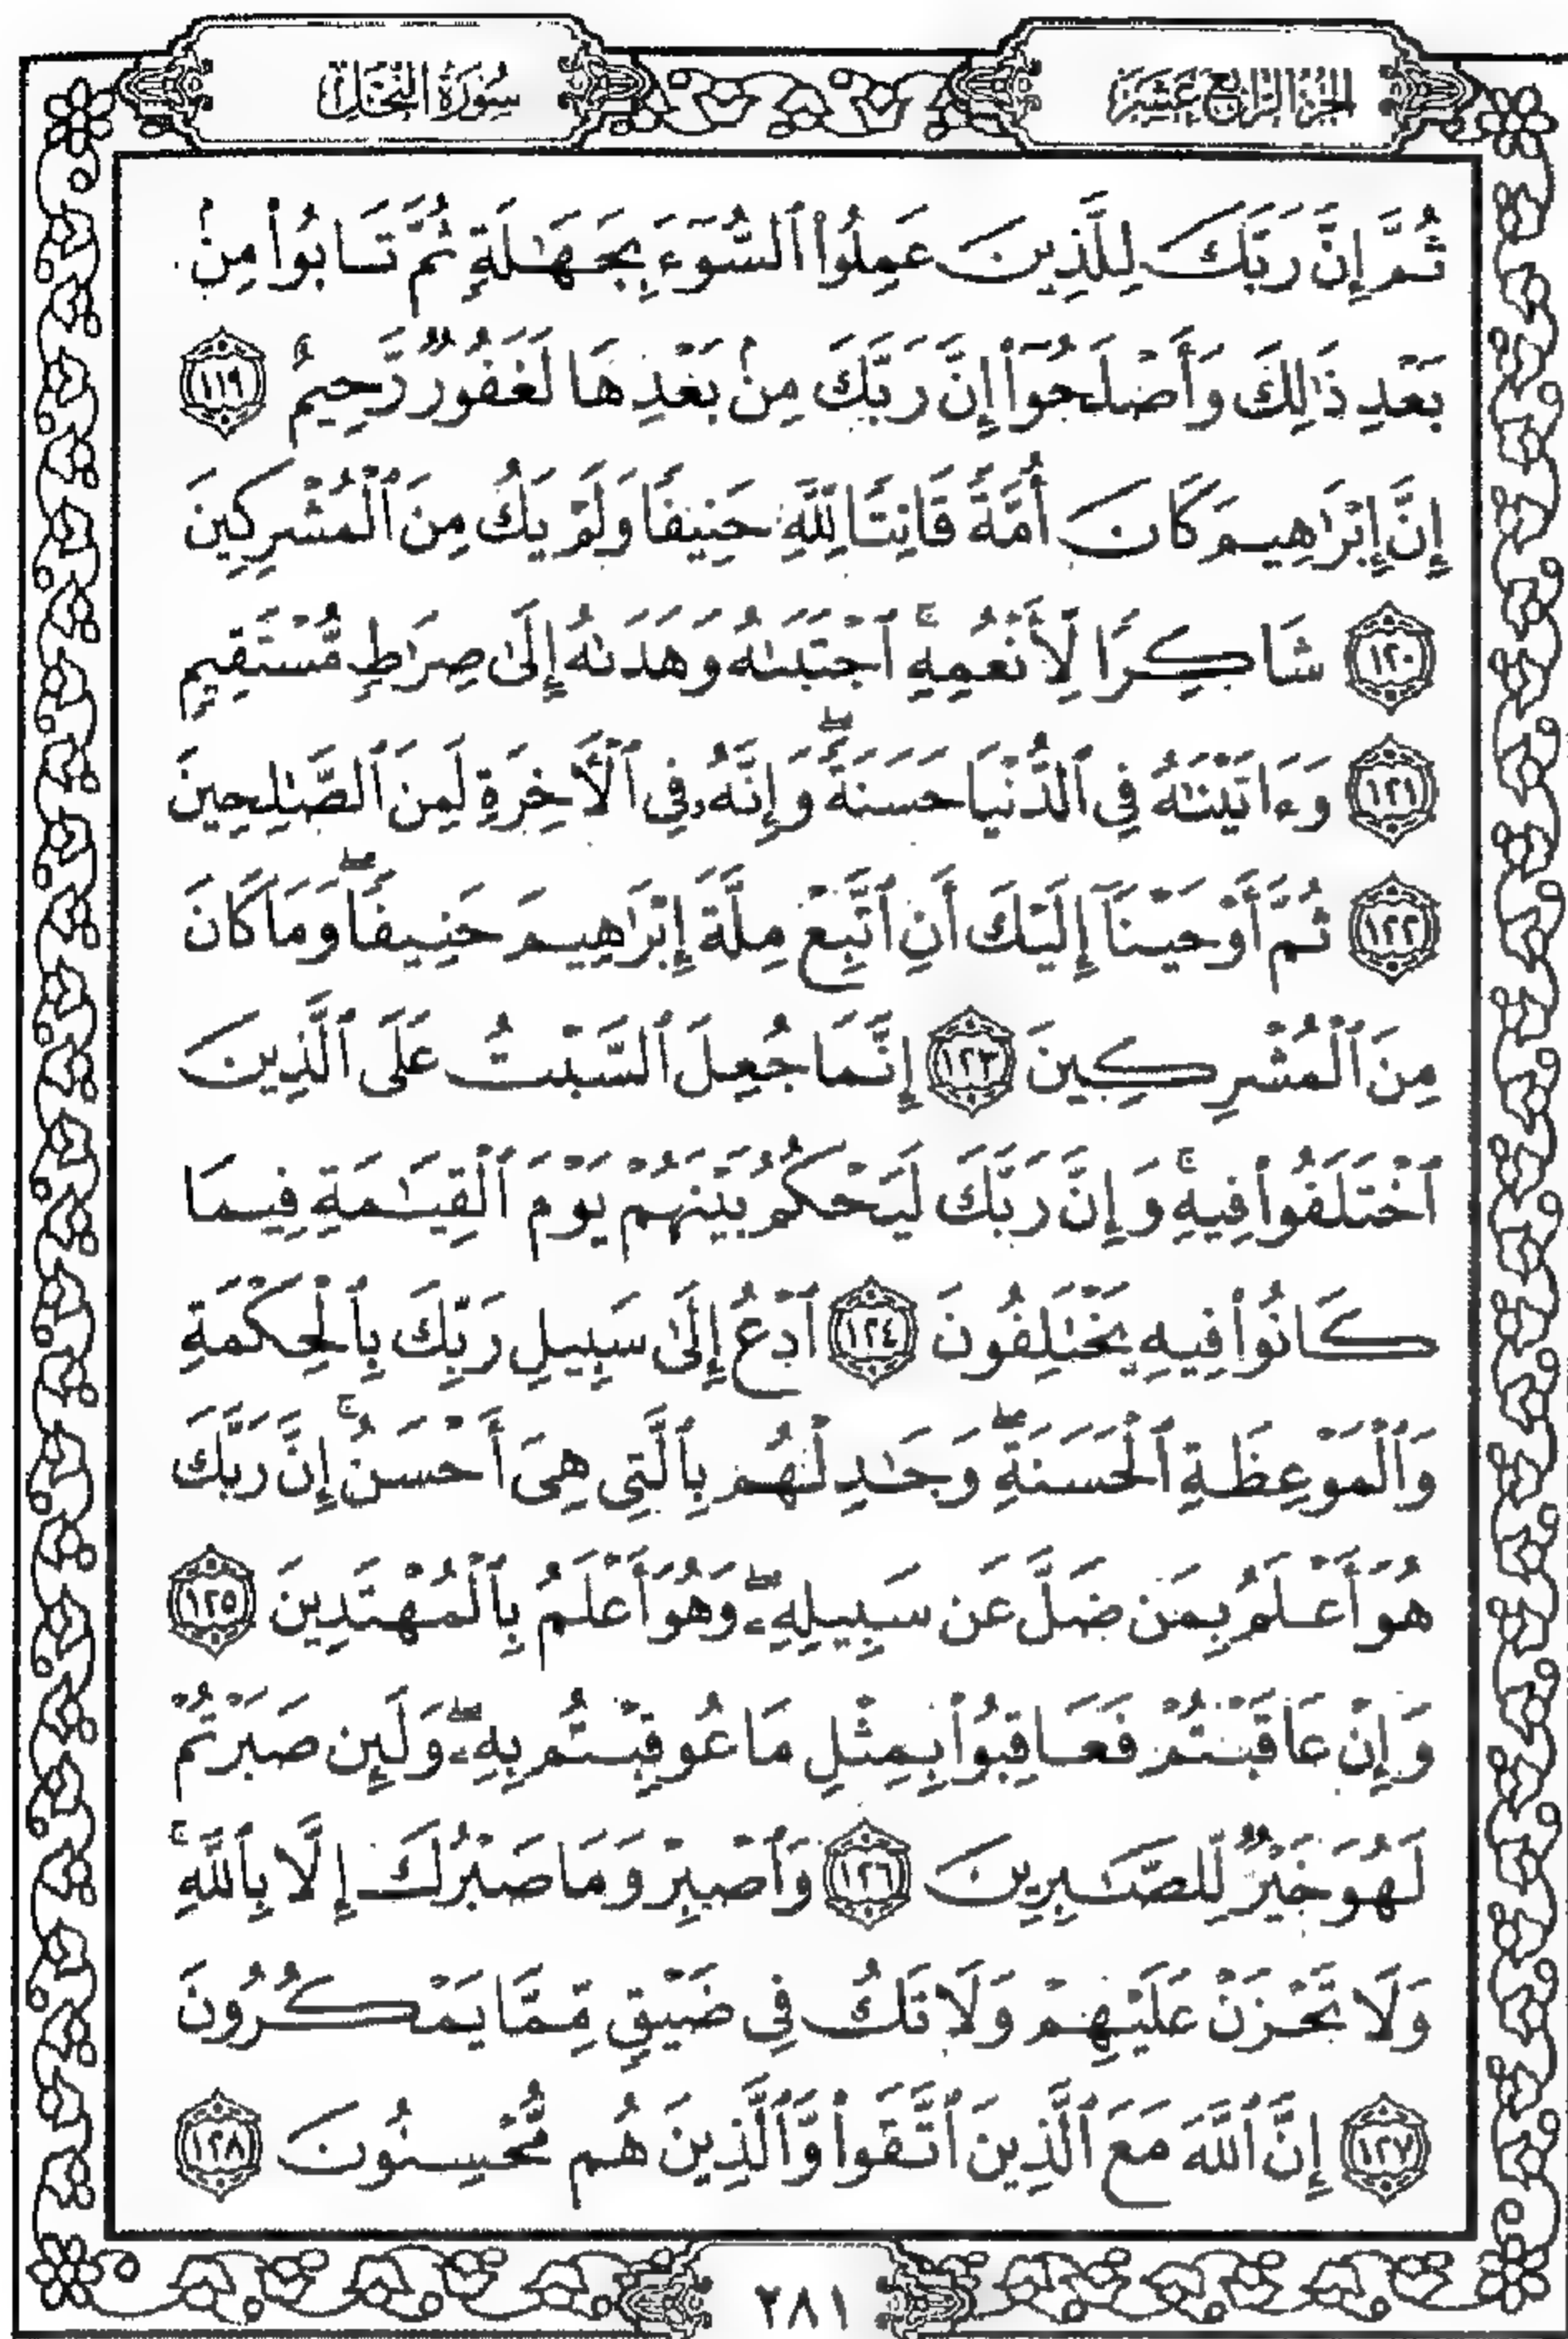 الجزء الرابع عشر
سُورَةُ النَّحْلِ
ثُمَّ إِنَّ رَبَّكَ لِلَّذِينَ عَمِلُوا۟ ٱلسُّوٓءَ بِجَهَـٰلَةٍ ثُمَّ تَابُوا۟ مِنۢ
بَعْدِ ذَٰلِكَ وَأَصْلَحُوٓا۟ إِنَّ رَبَّكَ مِنۢ بَعْدِهَا لَغَفُورٌ رَّحِيمٌ ﴿١١٩﴾
إِنَّ إِبْرَٰهِيمَ كَانَ أُمَّةً قَانِتًا لِّلَّهِ حَنِيفًا وَلَمْ يَكُ مِنَ ٱلْمُشْرِكِينَ
﴿١٢٠﴾ شَاكِرًا لِّأَنْعُمِهِ ۚ ٱجْتَبَىٰهُ وَهَدَىٰهُ إِلَىٰ صِرَٰطٍ مُّسْتَقِيمٍ
﴿١٢١﴾ وَءَاتَيْنَـٰهُ فِى ٱلدُّنْيَا حَسَنَةً ۖ وَإِنَّهُۥ فِى ٱلْـَٔاخِرَةِ لَمِنَ ٱلصَّـٰلِحِينَ
﴿١٢٢﴾ ثُمَّ أَوْحَيْنَآ إِلَيْكَ أَنِ ٱتَّبِعْ مِلَّةَ إِبْرَٰهِيمَ حَنِيفًا ۖ وَمَا كَانَ
مِنَ ٱلْمُشْرِكِينَ ﴿١٢٣﴾ إِنَّمَا جُعِلَ ٱلسَّبْتُ عَلَى ٱلَّذِينَ
ٱخْتَلَفُوا۟ فِيهِ ۚ وَإِنَّ رَبَّكَ لَيَحْكُمُ بَيْنَهُمْ يَوْمَ ٱلْقِيَـٰمَةِ فِيمَا
كَانُوا۟ فِيهِ يَخْتَلِفُونَ ﴿١٢٤﴾ ٱدْعُ إِلَىٰ سَبِيلِ رَبِّكَ بِٱلْحِكْمَةِ
وَٱلْمَوْعِظَةِ ٱلْحَسَنَةِ ۖ وَجَـٰدِلْهُم بِٱلَّتِى هِىَ أَحْسَنُ ۚ إِنَّ رَبَّكَ
هُوَ أَعْلَمُ بِمَن ضَلَّ عَن سَبِيلِهِۦ ۖ وَهُوَ أَعْلَمُ بِٱلْمُهْتَدِينَ ﴿١٢٥﴾
وَإِنْ عَاقَبْتُمْ فَعَاقِبُوا۟ بِمِثْلِ مَا عُوقِبْتُم بِهِۦ ۖ وَلَئِن صَبَرْتُمْ
لَهُوَ خَيْرٌ لِّلصَّـٰبِرِينَ ﴿١٢٦﴾ وَٱصْبِرْ وَمَا صَبْرُكَ إِلَّا بِٱللَّهِ ۚ
وَلَا تَحْزَنْ عَلَيْهِمْ وَلَا تَكُ فِى ضَيْقٍ مِّمَّا يَمْكُرُونَ
﴿١٢٧﴾ إِنَّ ٱللَّهَ مَعَ ٱلَّذِينَ ٱتَّقَوا۟ وَّٱلَّذِينَ هُم مُّحْسِنُونَ ﴿١٢٨﴾
٢٨١